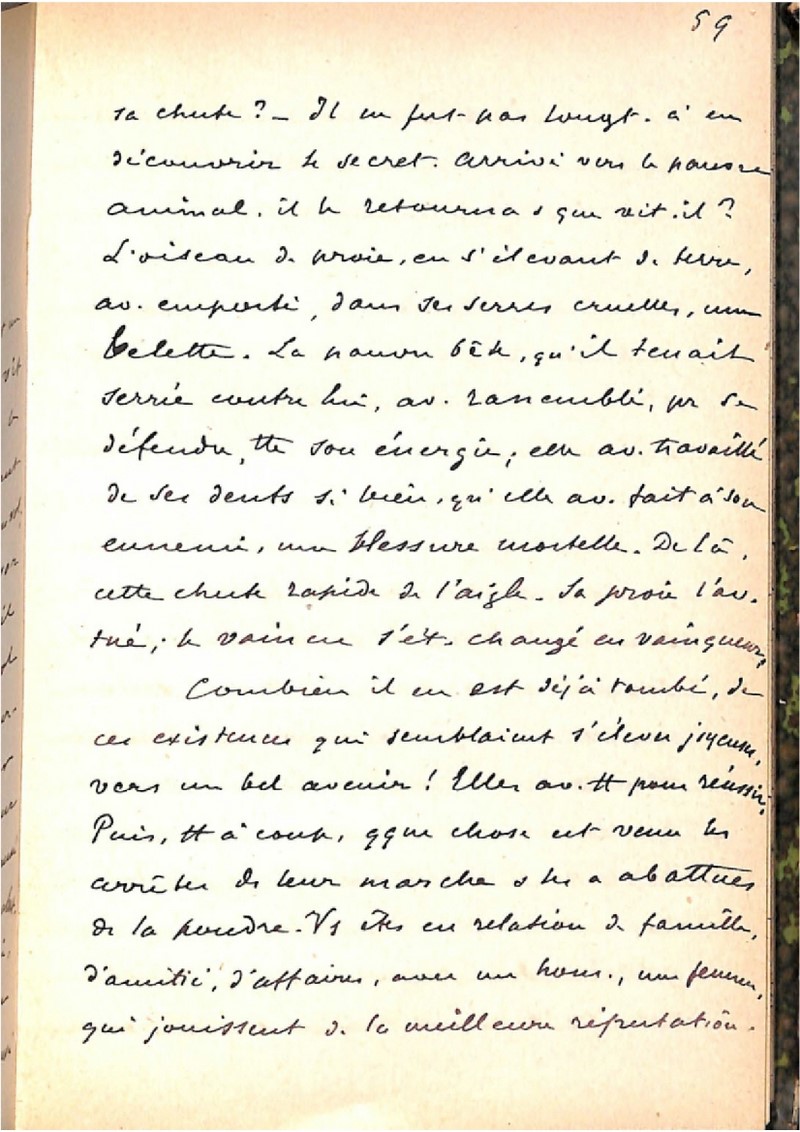 59
sa chute? _ Il ne fut pas longt. à en
découvrir le secret. Arrivé vers le pauvre
animal. il le retourna & que vit-il?
L'oiseau de proie, en s'élevant de terre,
av. emporté, dans ses serres cruelles, une
belette. La pauvre bête, qu'il tenait
serrée contre lui, av. rassemblé, pr se
défendre, tte son énergie; elle av. travaillé
de ses dents si bien, qu'elle av. fait à son
ennemi, une blessure mortelle. De là,
cette chute rapide de l'aigle. Sa proie l'av.
tué; le vaincu s'ét. changé en vainqueur.
Combien il en est déjà tombé, de
ces existences qui semblaient s'élever joyeuses,
vers un bel avenir! Elles av. tt pour réussir.
Puis, tt à coup, qque chose est venu les
arrêter ds leur marche & les a abattues
ds la poudre. Vs êtes en relation de famille,
d'amitié, d'affaires, avec un hom., une femme,
qui jouissent de la meilleure réputation.